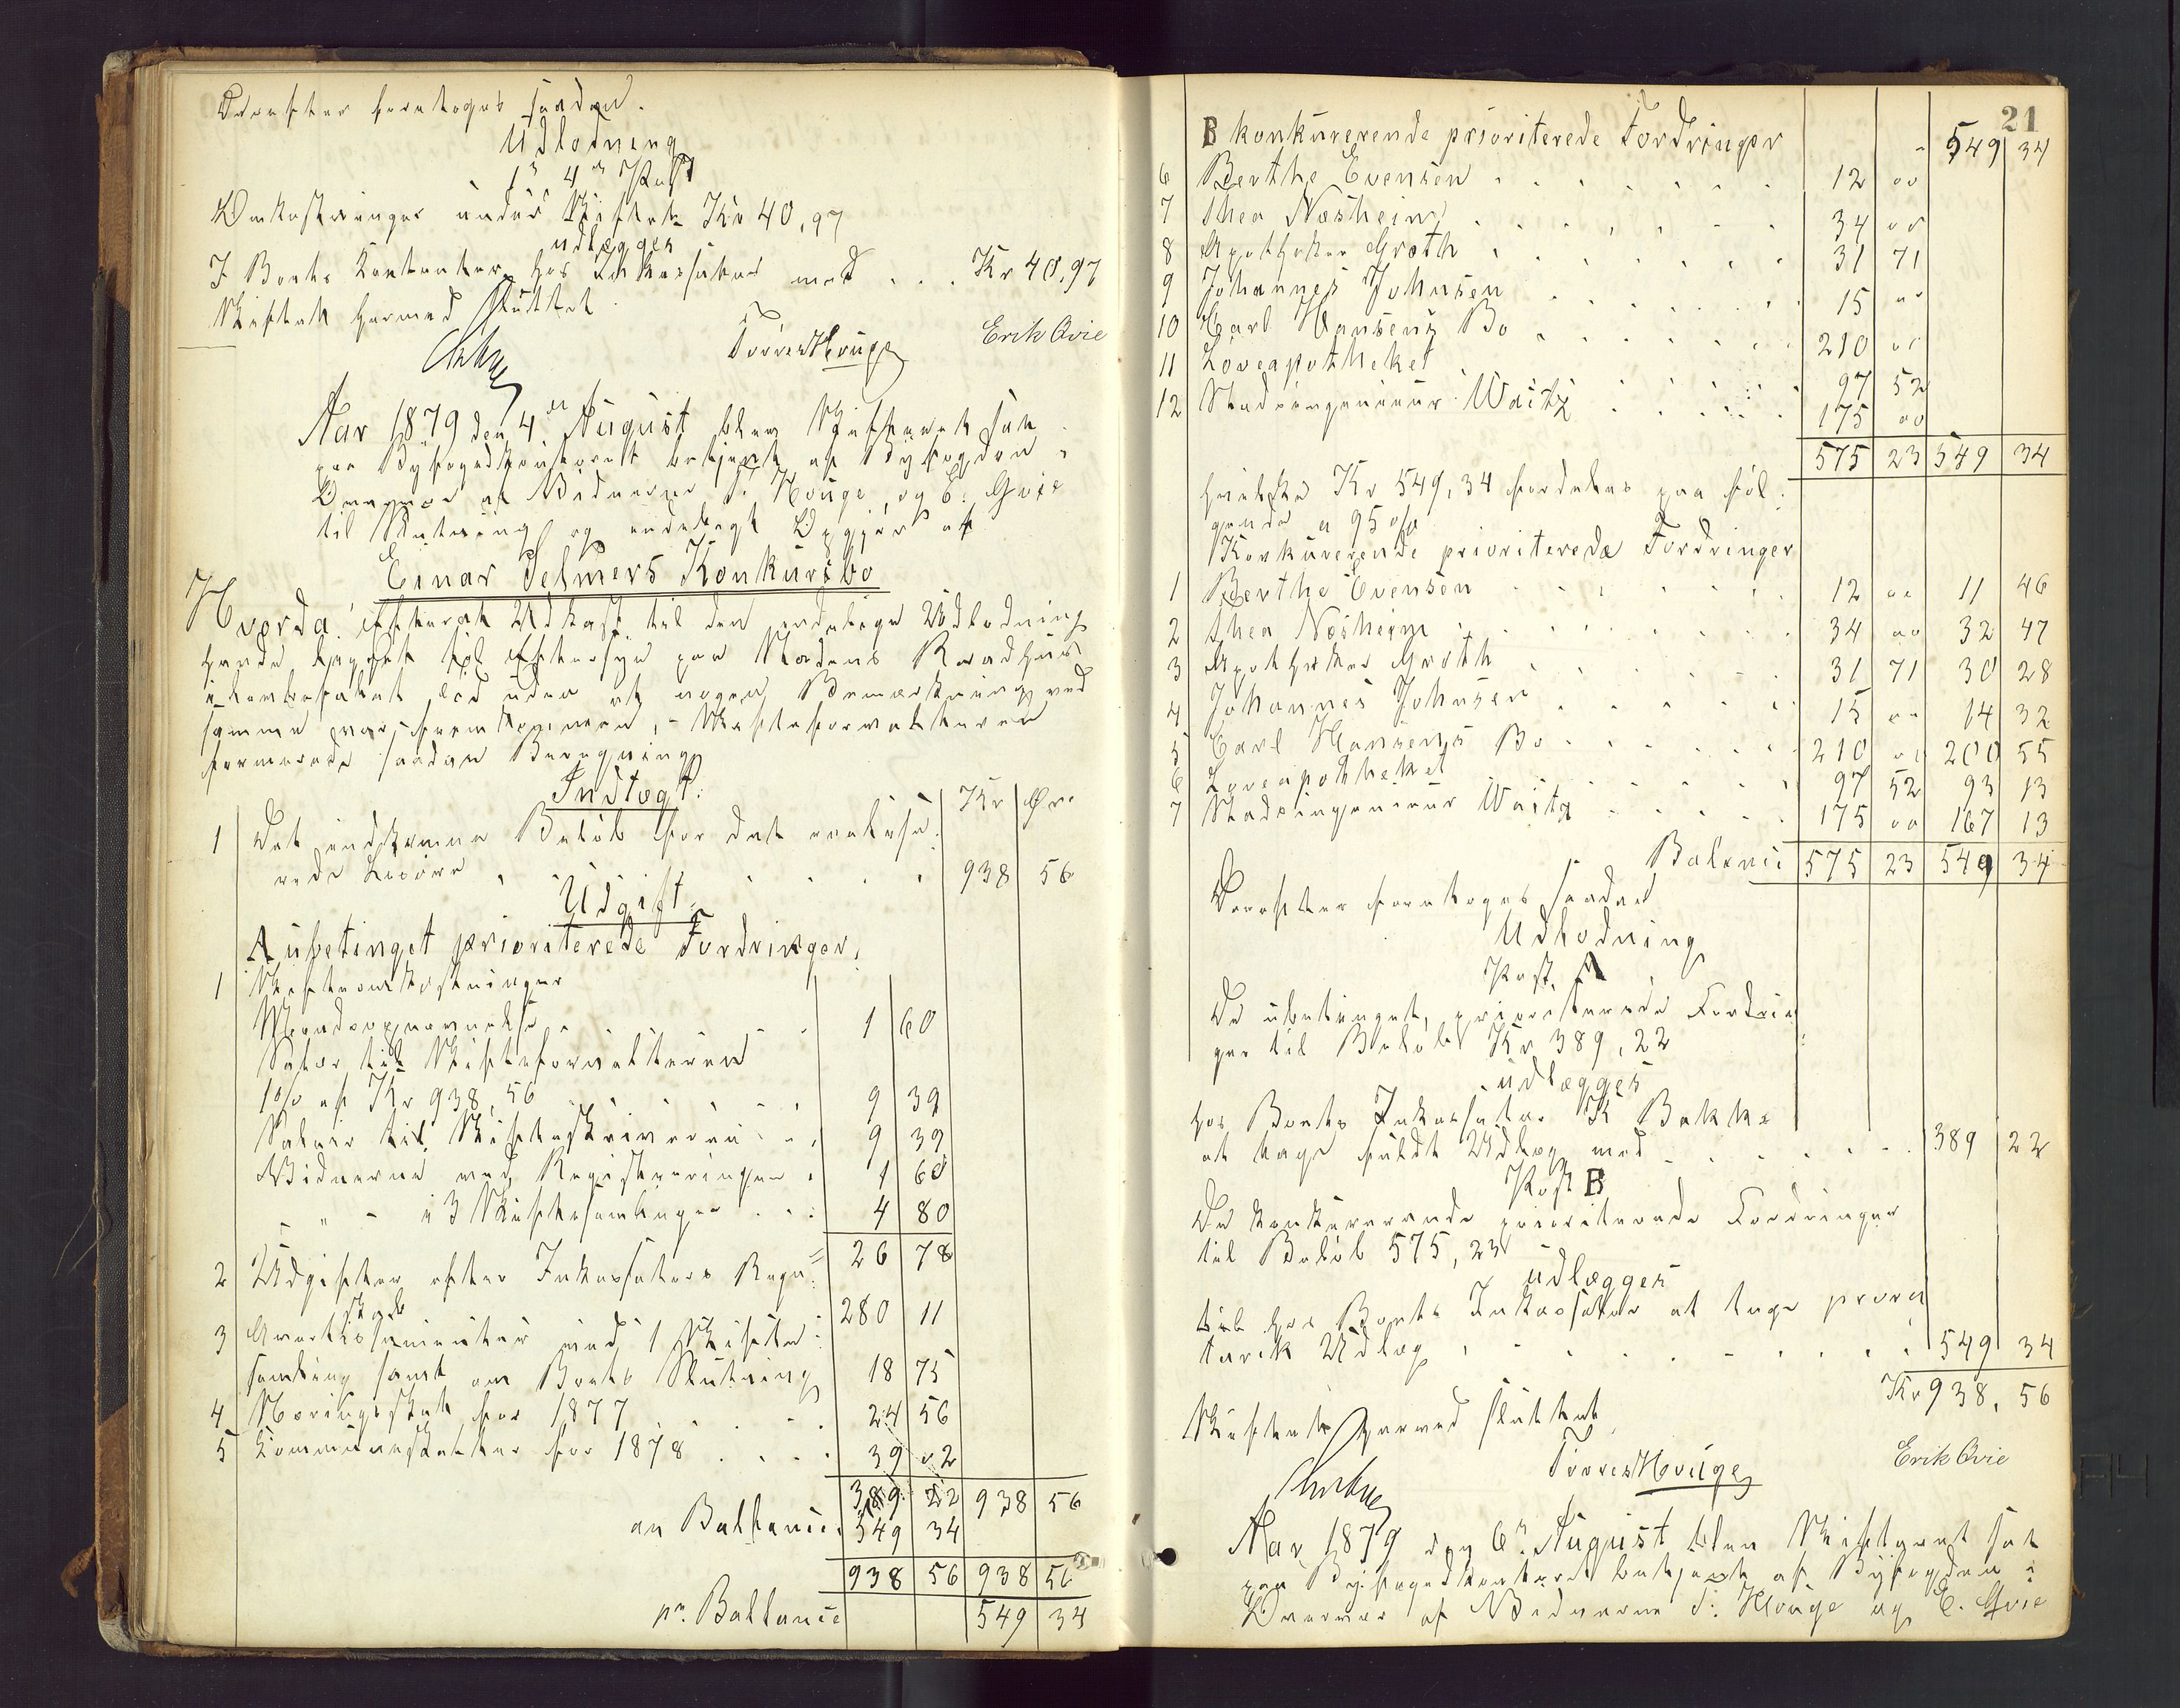 Derefter foretoges saadan
Udlodning
1ste 4de Post
Omkostninger under Skiftet Kr 40,97
udlægges
I Boets Contanter hos Inkassator med . . . Kr 40,97
Skiftet hermed sluttet
Torres Houge Erik Qvie
Aar 1879 den 4de August blev Skifteret sat
paa Byfogedkontoret betjent af Byfogden i
Overvær af Vidnerne T. Houge og E. Qvie
til Slutning og endeligt Opgjør af
Einar Selmers Konkursbo
Hvorda efterat Udkast til den endelige Udlodning
havde ligget til Eftersyn paa Stadens Raadhus
i lovbefalet Tid uden at nogen Bemærkning ved
samme var fremkommen, - Skifteforvalteren
formerede saadan Beregning
Indtægt. Kr Øre
1 Det indkomne Beløb for det realise-
rede Løsøre 938 56
Udgift.
A ubetinget prioriterede Fordringer.
1 Skifteomkostninger
1 60
Salær til Skifteforvalteren
1 % af Kr 938,56 9 39
Salair til Skifteskriveren 9 39
Vidnerne ved Registreringen 1 60
- " - i 3 Skiftesamlinger 4 80
26 78
2 Udgifter efter Inkassators Regn-
skab 280 11
3 Avertissementer med 1 Skifte-
samling samt om Boets Slutning 18 75
4 Næringsskat for 1877 24 56
5 Kommuneskatter for 1878 39 02
389 22 938 56
an Ballance 549 34
938 56 938 56
pr. Ballance 549 34
21
B konkurerende prioriterede Fordringer 549 34
6 Berthe Evensen 12 00
7 Thea Næsheim 34 00
8 Apotheker Groth 31 71
9 Johannes Johnsen 15 00
10 Carl Hansens Bo 210 00
11 Løveapotheket 97 52
12 Stadsingenieur Waitz 175 00
575 23 549 34
hvilke Kr 549,34 fordeles paa føl-
gende a 95 %
Konkurerende prioriterede Fordringer
1 Berthe Evensen 12 00 11 46
2 Thea Næsheim 34 00 32 47
3 Apotheker Groth 31 71 30 28
4 Johannes Johnsen 15 00 14 32
5 Carl Hansens Bo 210 00 200 55
6 Løveapotheket 97 52 93 13
7 Stadsingenieur Waitz 175 00 167 13
Balance 575 23 549 34
Derefter foretoges saadan
Udlodning
Post A
De ubetinget prioriterede Fordrin-
ger til Beløb Kr 389,22
udlægges
hos Boets Inkassator K Bakke
at tage fuldt Udlæg med 389 22
Post B
De konkurerende prioriterede Fordringer
til Beløb 575,23
udlægges
hos Boets Inkassator at tage prora
tarisk Udlæg 549 34
Kr 938,56
Skiftet hermed sluttet
Torres Houge Erik Qvie
Aar 1879 den 6te August blev Skifteret sat
paa Byfogedkontoret betjent af Byfogden i
Overvær af Vidnerne T. Houge og E. Qvie